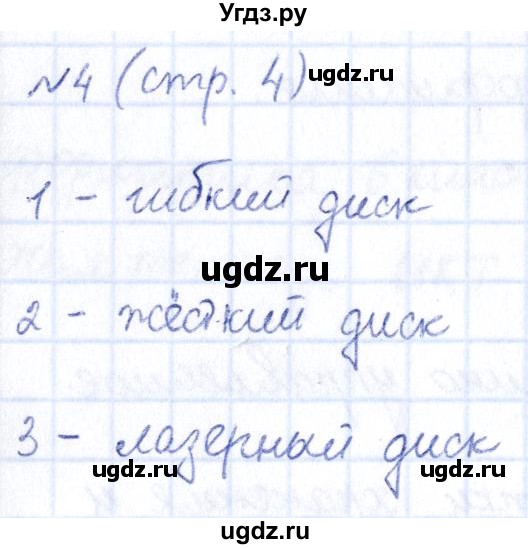 Угдз.ру
№4 (стр. 4)
ugdz.ru
1 - гибкий диск
ugdz.ru
2 - жёсткий диск
3 - лазерный диск
ugdz.ru
ugdz.ru